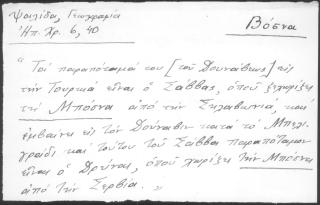 Ψαλίδα, Γεωγραφία
Ἠπ. Χρ. 6, 40
Βόσνα
"Τοί παραπόταμοί του [τοῦ Δουνάβεως] εἰς
τὴν Τουρκιά εἶναι ὁ Σάββας, ὁποῦ ξεχωρίζει
τὴ Μπόσνα ἀπό τὴν Σκλαβωνιά, καί
ἐμβαίνει εἰς τὸν Δούναβιν κατά τό Μπελι-
γράδι καί τούτου τοῦ Σάββα παραπόταμον
εἶναι ὁ Δρύνας, ὁποῦ χωρίζει τὴν Μπόσνα
ἀπό τὴν Σερβία."